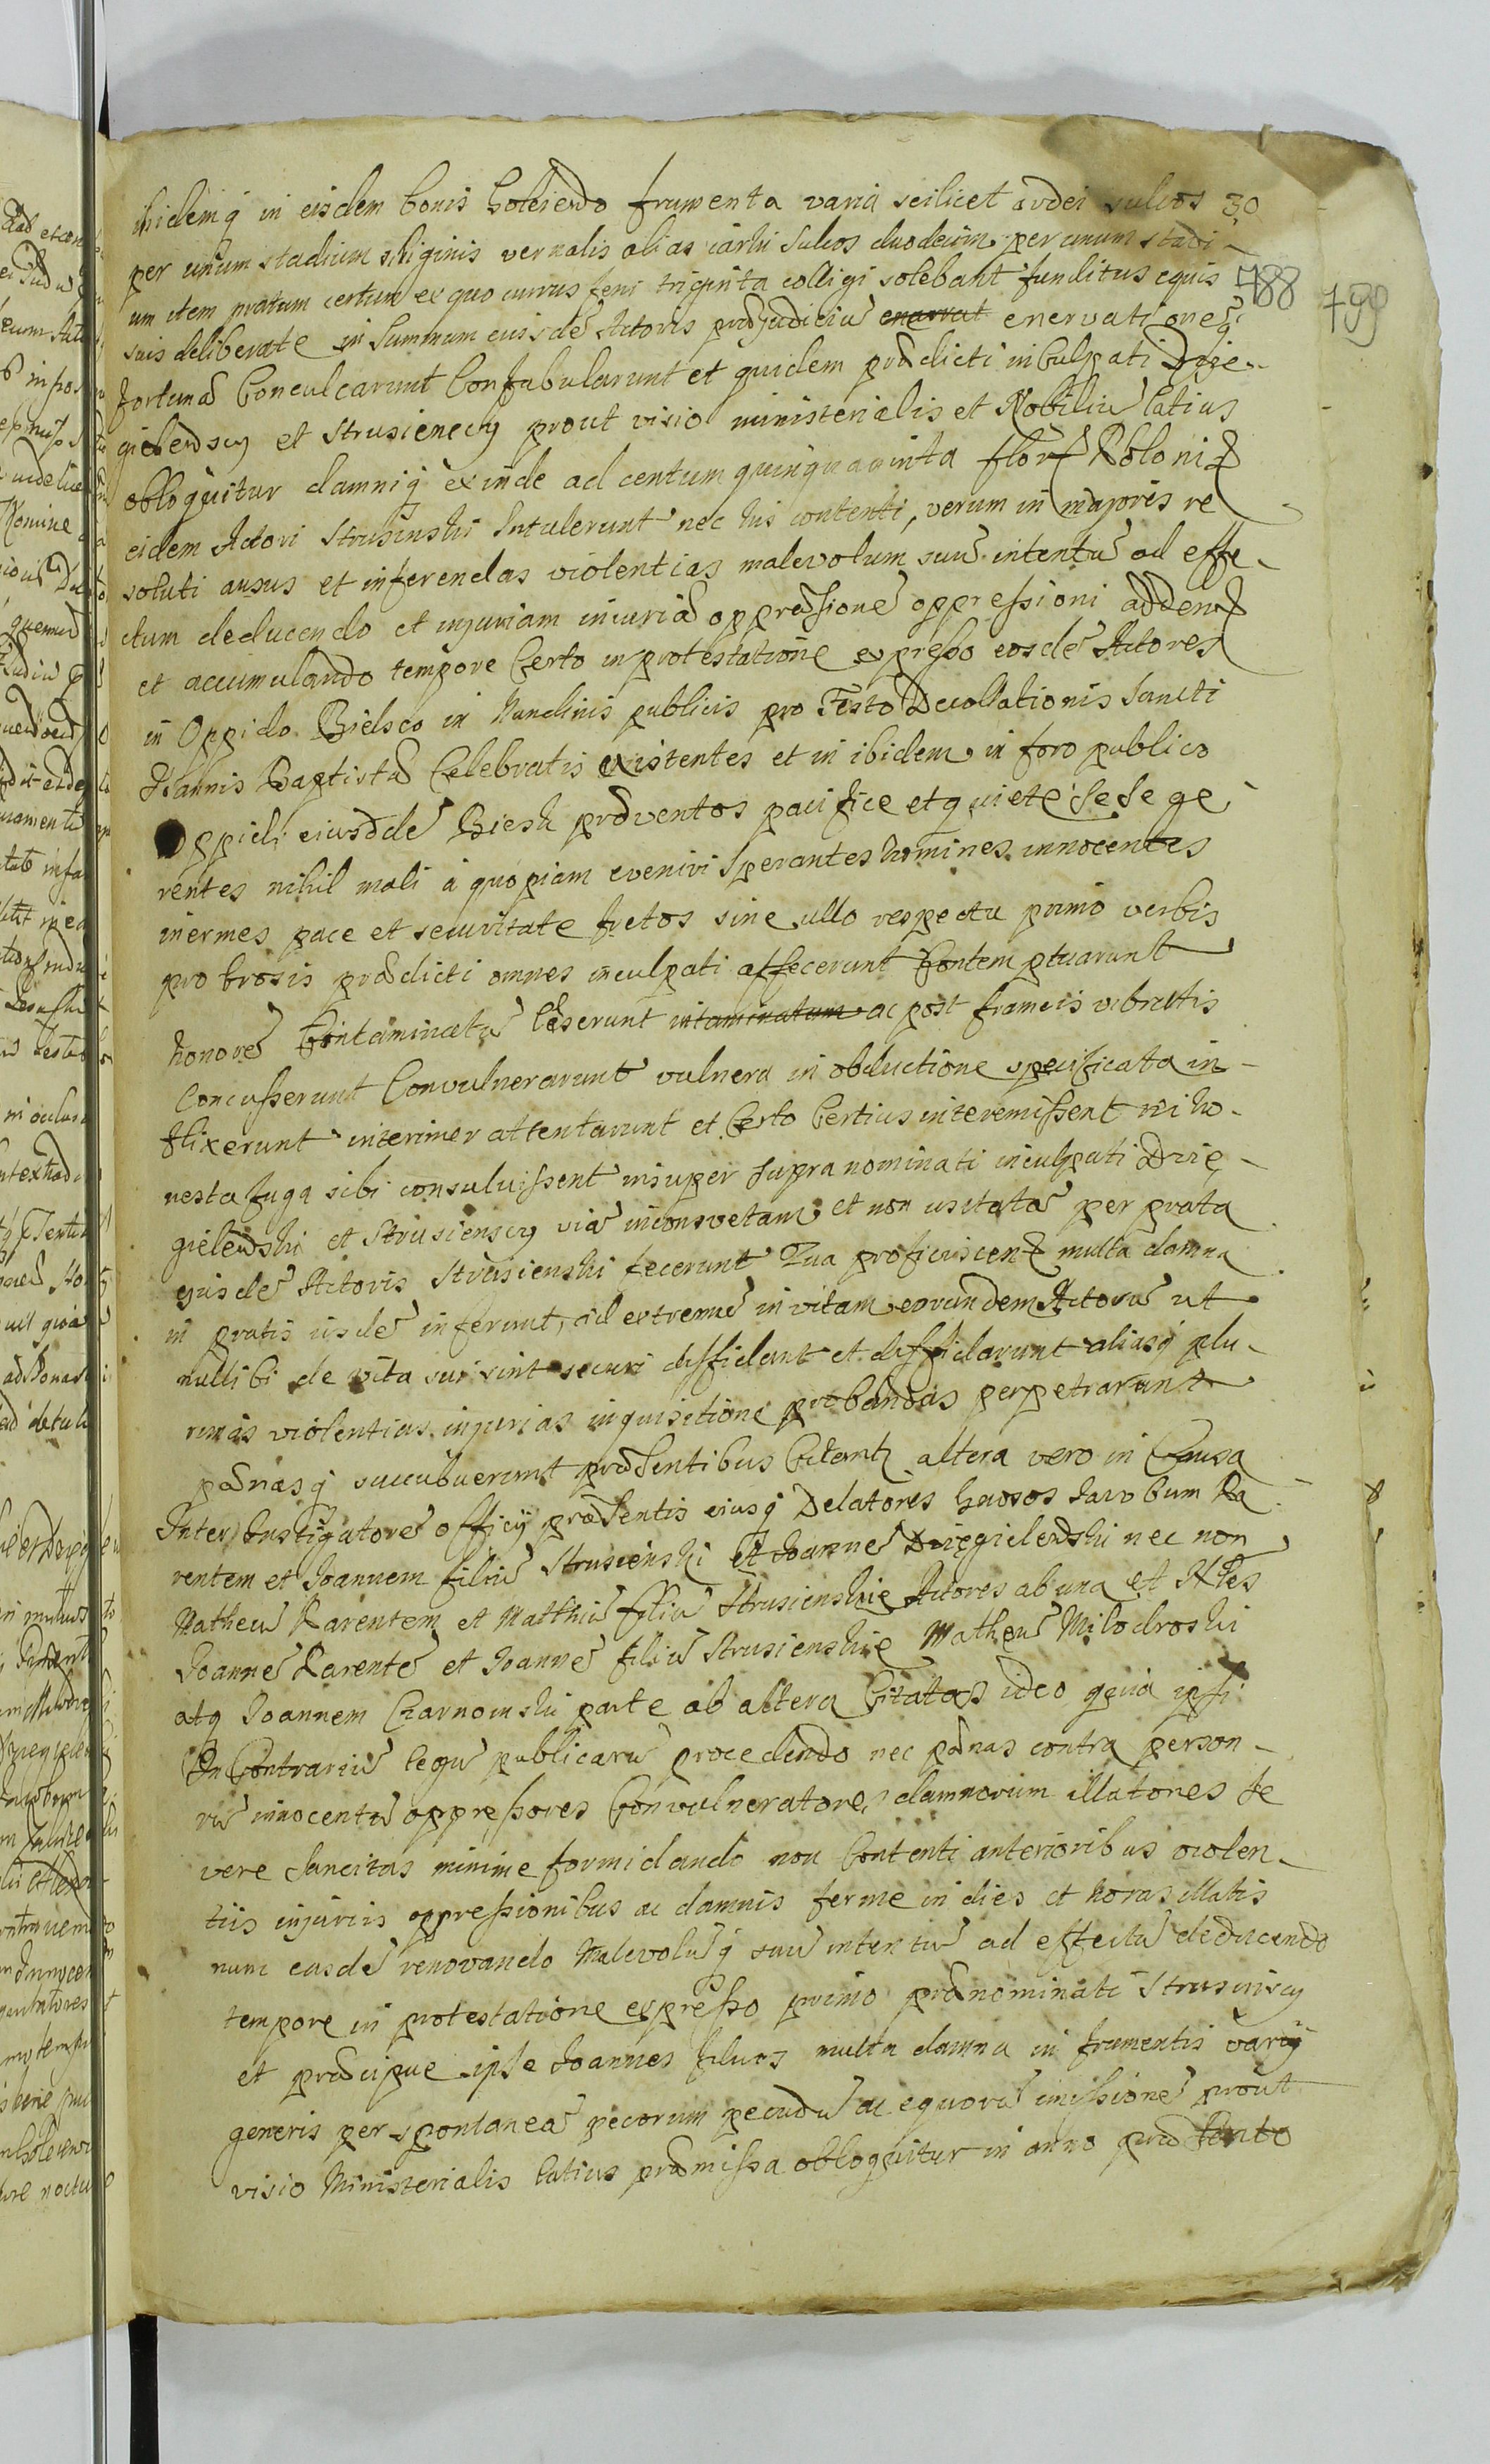 ibidemq in eisdem bonis Holeiendo frumenta varia scilicet ordei sulcos 30
per unum stadium siliginis vernalis alias iarki sulcos duodecim per unum stadi-
um item pratum certum ex quo currus feni triginta colligi solebant funditus equis
suis deliberate in summum eiusdē Actoris præjudiciū enarrat enervationeq
fortunæ Conculcarunt Confabularunt et quidem prædicti inculpati Dzie-
gielewscy et Strusienscy prout visio ministerialis et Nobiliū latius
obloquitur damniq exinde ad centum quinquaginta flor Poloni
eidem Actori Strusinski Intulerunt nec his contenti, verum in majores re
soluti ausus et inferendas violentias malevolum suū intentū ad effe-
ctum deducendo et injuriam iniuriæ oppressionē oppressioni addend
et accumulando tempore Certo in protestatione expresso eosdē Actores
in Oppido Bielsco in Nundinis publicis pro Festo Decollationis Sancti
Joannis Baptistæ Celebratis existentes et in ibidem in foro publico
Oppidi eiusdē Biesk præventos pacifice et quiete se se ge
rentes nihil mali a quopiam evenivi sperantes homines innocentes
inermes pace et securitate fretos sine ullo respectu primo verbis
probrosis prædicti omnes inculpati affecerunt Contemptuarunt
honorē Contaminatū læserunt intaminatum ac post frameis vibratis
Concusserunt Convulnerarunt vulnera in obductione specificata in-
flixerunt interimer attentarunt et Certo Certius interemissent ni ho-
nesta fuga sibi consuluissent insuper supra nominati inculpati Dzię-
gielewski et Strusienscy viā inconsvetam et non usitatā per prata
ejusdē Actoris Strusienski fecerunt Qua proficiscend multa damna
in pratis iisdē inferunt, ad extremū in vitam eorundem Actorū ut
nullibi de vita sui sint securi diffidant et diffidarunt aliasq plu-
rimas violentias injurias inquisitione probandas perpetrarunt
pænasq succubuerunt præsentibus Citant altera vero in Causa
Inter Instigatorē officij præsentis eiusq Delatores Gnosos Jacobum Pa
rentem et Joannem filiū Strusienski et Joannē Dzięgielewski nec non
Matheū Parentem et Matthiā filiū Strusienskie Actores ab una et Nles
Joannē Parentē et Joannē filiū Strusienskie Matheū Milodroski
atq Joannem Czarnowski parte ab altera Citatas ideo quia ipsi
In Contrariū legū publicarū procedendo nec pænas contra person-
rū innocentū oppressores Convulneratores damnorum illatores se
vere sancitas minime formidando non Contenti anterioribus violen-
tiis injuriis oppressionibus ac damnis ferme in dies et horas illatis
nunc easdē renovando Malevolūq suū intentū ad effectū deducendo
tempore in protestatione expresso primo prænominati Strusinscy
et præcipue ipse Joannes filius multa damna in frumentis varij
generis per spontaneā pecorum pecudū ac equorū imissionē prout
visio Ministerialis latius præmissa obloquitur in anno præsento
788
799